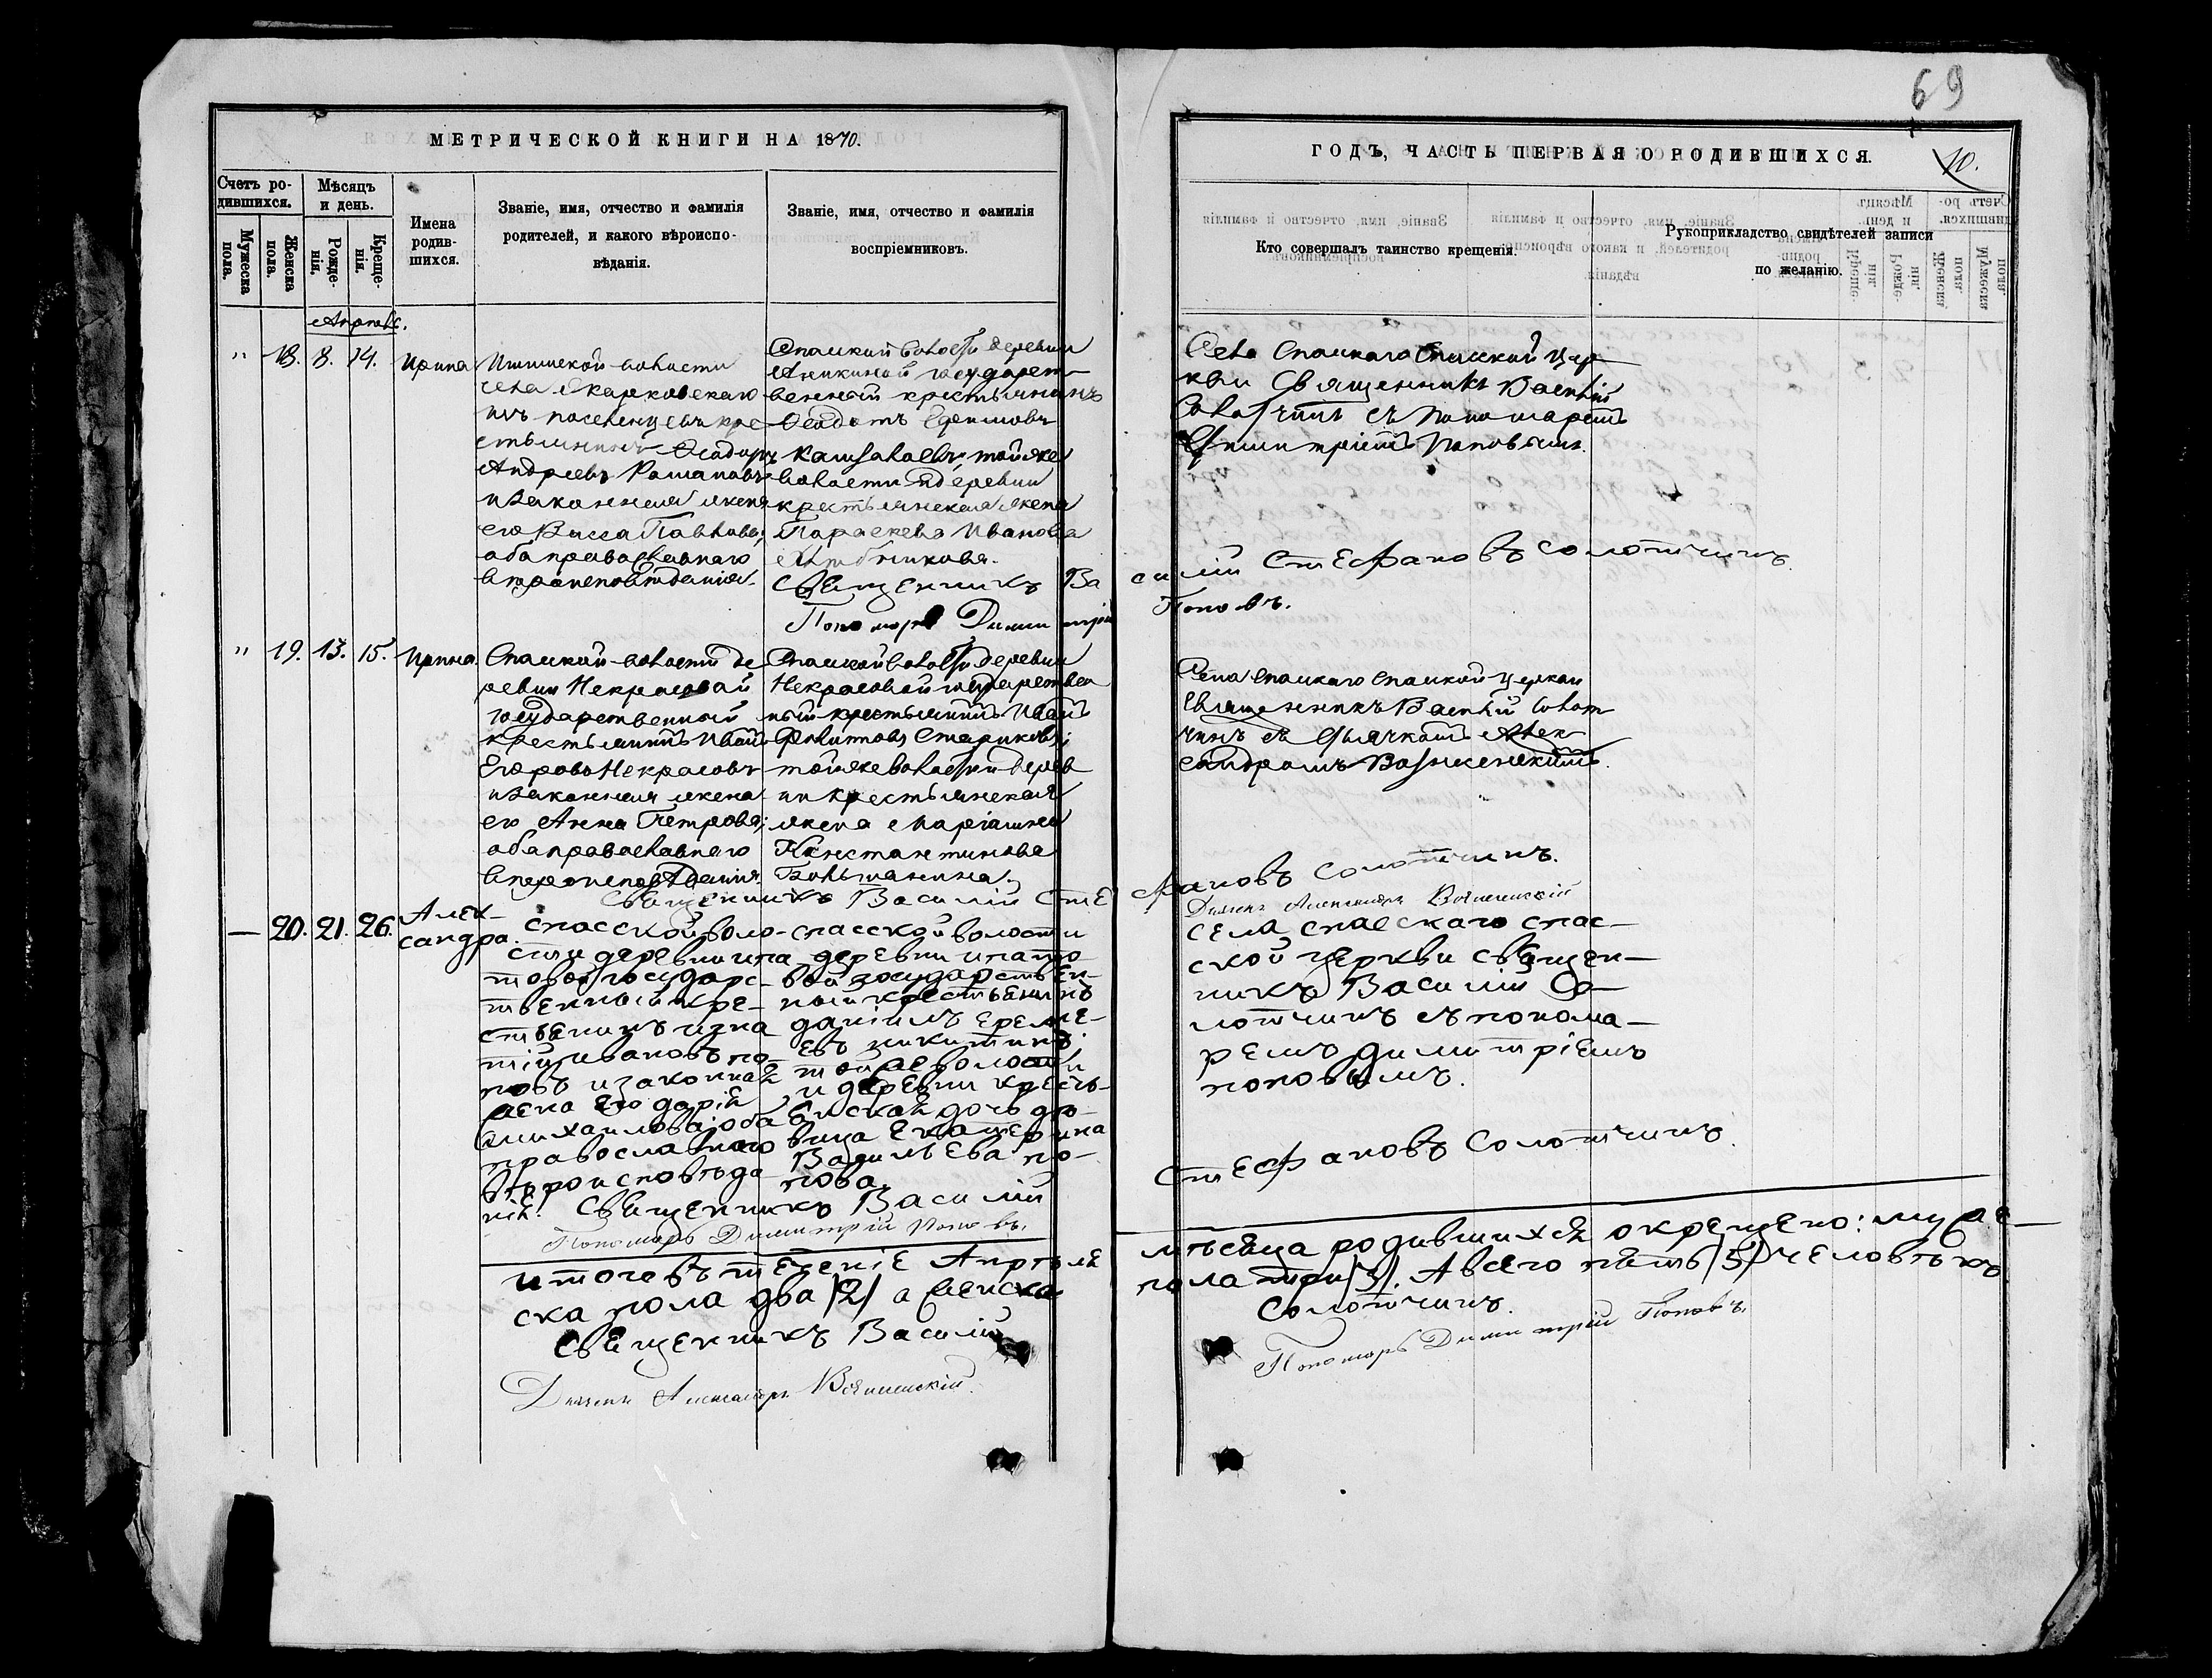 69
МЕТРИЧЕСКОЙ КНИГИ НА 1870.
ГОДЪ, ЧАСТЬ ПЕРВАЯ О РОДИВШИХСЯ.
10.
Счетъ ро-
дившихся.
Мужеска пола.
Женска пола.
Мѣсяцъ
и день.
Рожде-
нія.
Креще-
нія.
Имена
родив-
шихся.
Званіе, имя, отчество и фамилія
родителей, и какого вѣроиспо-
вѣданія.
Званіе, имя, отчество и фамилія
воспріемниковъ.
Кто совершалъ таинство крещенія.
Рукоприкладство свидѣтелей записи
по желанію.
" 18. 8. 14. Ирина
волости
села
изъ поселенцевъ кре
стьянинъ
Андреевъ
и законная жена
его Васса Павлова;
оба православнаго
вѣроисповѣданія.
Спаской волости деревни
Аникиной государст-
венный крестьянинъ
Ѳеодотъ Ефимовъ
тойже
волости и деревни
крестьянская жена
Параскева Иванова
Села Спаскаго Спаской цер
кви Священникъ Василій
Солотчинъ съ пономаремъ
Димитріемъ Поповымъ.
Священникъ Василій Стефановъ Солотчинъ.
Пономарь Димитрій Поповъ.
" 19. 13. 15. Ирина
Спаской волости де
ревни Некрасовой
государственный
крестьянинъ Иванъ
Егоровъ Некрасовъ
и законная жена
его Анна Петрова;
оба православнаго
вѣроисповѣданія.
Спаской волости деревни
Некрасовой государствен
ный крестьянинъ Иванъ
Филиповъ Стариковъ;
тойже волости и дерев
ни крестьянская
жена Маріамна
Константинова
Села Спаскаго Спаской церкви
Священникъ Василій Солот
чинъ съ Дьячкомъ Алек
сандромъ
Священникъ Василій Стефановъ Солотчинъ.
Дьячекъ Александръ
— 20. 21. 26. Алек-
сандра.
спасской воло-
сти деревни ипа
товой государс-
твенный кре-
стьянинъ игна
тій ивановъ по-
повъ и законная
жена его дарія
михаилова; оба
православнаго
вѣроисповѣда
нія.
спасской волости
деревни ипато
вой государствен-
ный крестьянинъ
даніилъ ереме-
евъ никитинъ;
той же волости
и деревни кресть-
янская дочь дѣ-
вица екатерина
Васильева по-
пова.
села спасскаго спас-
ской церкви священ-
никъ Василій Со-
лотчинъ съ понома-
ремъ димитріемъ
поповымъ.
Священникъ Василій Стефановъ Солотчинъ.
Пономарь Димитрій Поповъ.
Итого въ теченіе Апрѣля мѣсяца родившихся окрещено: муже-
ска пола два /2/ а женска пола три /3/. А всего пять /5/ человѣкъ.
Священникъ Василій Солотчинъ.
Дьячекъ Александръ
Пономарь Димитрій Поповъ.